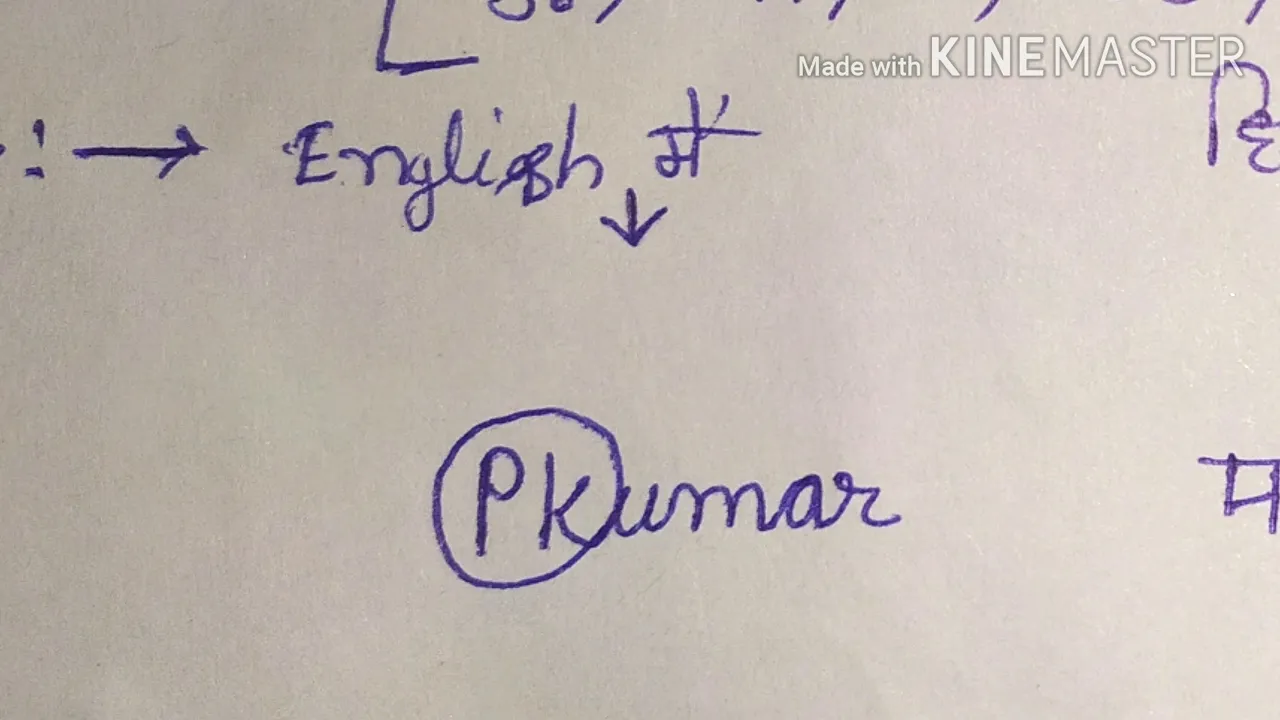 Made with KINEMASTER
:→ English में
↓
PKumar